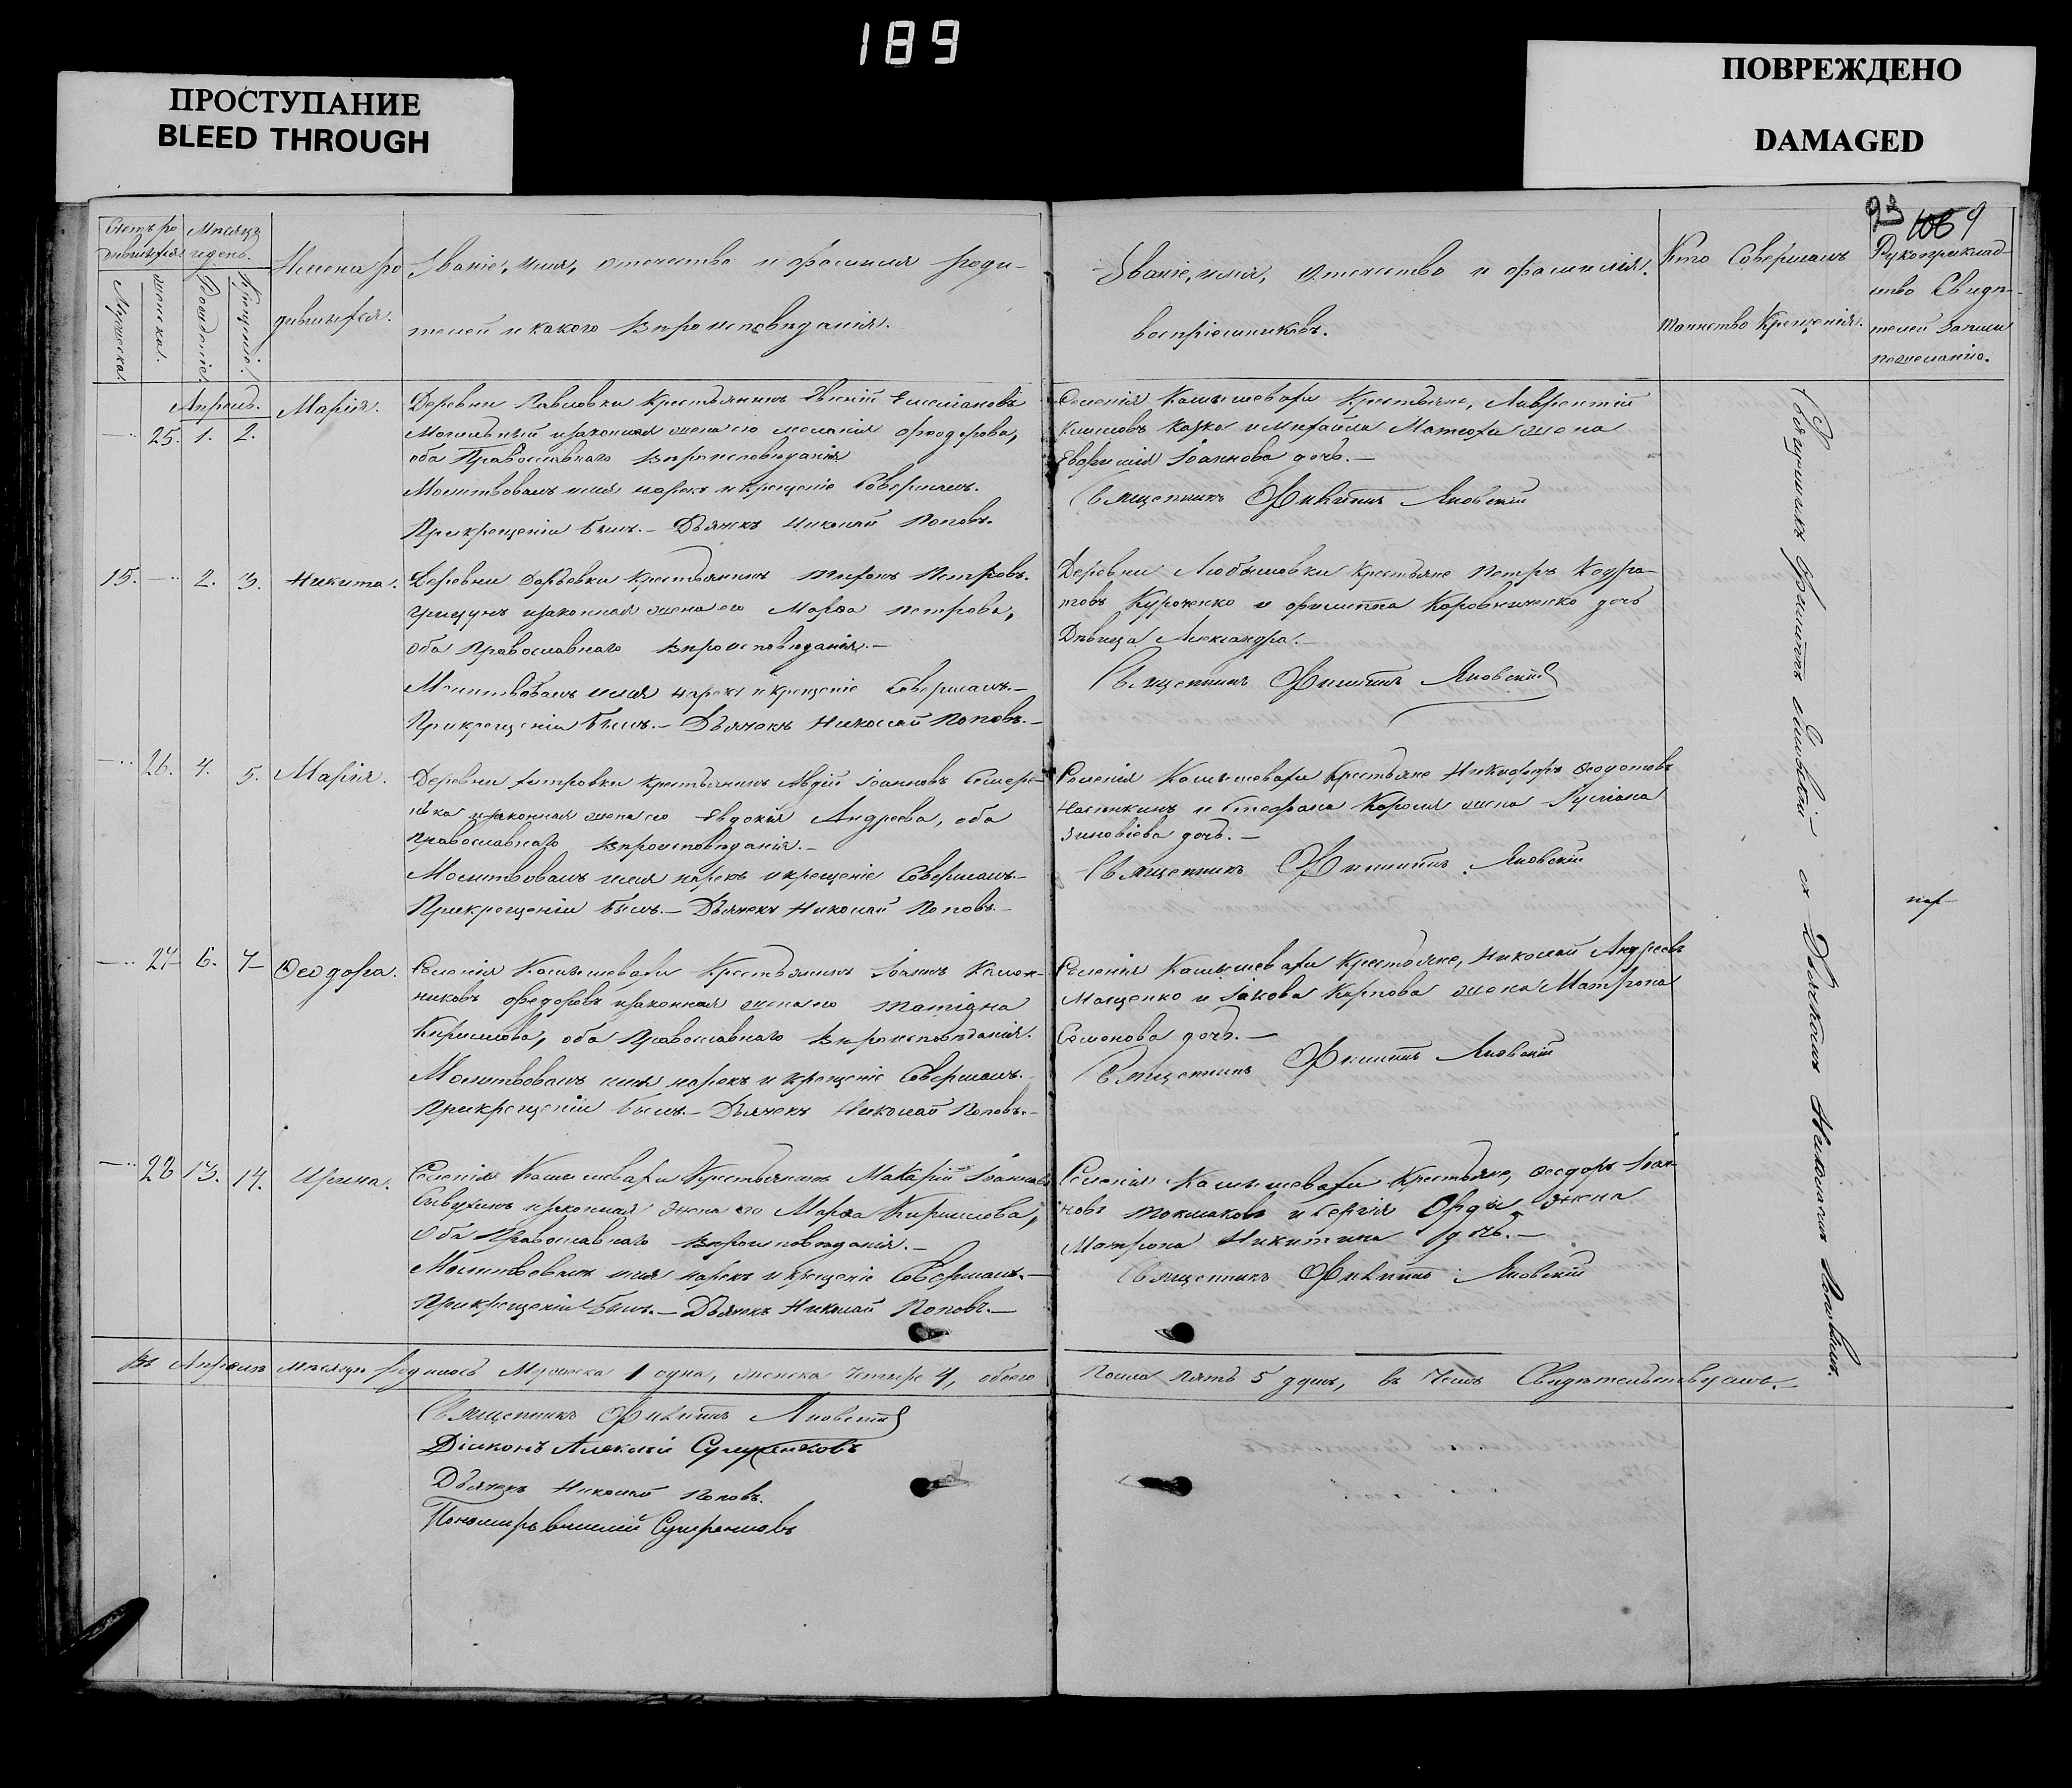 189
ПРОСТУПАНИЕ
BLEED THROUGH
ПОВРЕЖДЕНО
DAMAGED
93 1069
Счетъ ро
дившихся
Мѣсяцъ
и день.
Мужеска.
женска.
Рожденіе.
Крещеніе.
Имена ро
дившихся.
Званіе, имя, отечество и фамилія роди-
телей и какого вѣроисповѣданія.
Званіе, имя, отечество и фамилія
воспріемниковъ.
Кто совершалъ
таинство крещенія.
Рукоприклад-
ство свидѣ-
телей записи
по желанію.
Апрѣль.
25. 1. 2. Марія.
Деревни Павловки крестьянинъ Емеліановъ
и законная жена его Меланія Феодорова,
оба Православнаго вѣроисповѣданія
Молитвовалъ имя нарекъ и крещеніе совершалъ.
При крещеніи былъ.- Дьячекъ Николай Поповъ.
Селенія Камышевахи крестьяне, Лаврентій
Климовъ и Михаила жена
Евфимія Іоаннова дочь.-
Священникъ Филиппъ Яновскій
15. 2. 3. Никита.
Деревни крестьянинъ Петровъ
и законная жена его Марѳа Петрова,
оба Православнаго вѣроисповѣданія.-
Молитвовалъ имя нарекъ и крещеніе совершалъ.-
При крещеніи былъ.- Дьячекъ Николай Поповъ.-
Деревни Любымовки крестьяне Петръ Кодра-
товъ Курченко и Филиппа дочь
Дѣвица Александра.-
Священникъ Филиппъ Яновскій
26. 4. 5. Марія.
Деревни крестьянинъ Авдій Іоанновъ
и законная жена его Евдокія Андреева, оба
Православнаго вѣроисповѣданія.-
Молитвовалъ имя нарекъ и крещеніе совершалъ.-
При крещеніи былъ.- Дьячекъ Николай Поповъ.-
Селенія Камышевахи крестьяне Никифоръ Ѳеодотовъ
и Стефана жена
Зиновіева дочь.-
Священникъ Филиппъ Яновскій
27 6. 7 Ѳеодора.
Селенія Камышевахи крестьянинъ Іоаннъ
Федоровъ и законная жена его Татіана
Кирилова, оба Православнаго вѣроисповѣданія.
Молитвовалъ имя нарекъ и крещеніе совершалъ.
При крещеніи былъ.- Дьячекъ Николай Поповъ.-
Селенія Камышевахи крестьяне, Николай Андреевъ
Мащенко и Іакова Карпова жена Матрона
Семенова дочь.-
Священникъ Филиппъ Яновскій
28 13. 14. Ирина.
Селенія Камышевахи крестьянинъ Макарій Іоанновъ
и законная жена его Марѳа Кирилова,
оба Православнаго вѣроисповѣданія.-
Молитвовалъ имя нарекъ и крещеніе совершалъ.-
При крещеніи былъ.- Дьячекъ Николай Поповъ.-
Селенія Камышевахи крестьяне, Ѳеодоръ Іоан-
новъ Токмаковъ и Сергія Орды жена
Матрона Никитина дочь.-
Священникъ Филиппъ Яновскій
Священникъ Филиппъ Яновскій съ Дьячкомъ Николаемъ Поповымъ.
Въ Апрѣлѣ мѣсяцѣ родилось Мужеска 1 одна, женска четыре 4, обоего
пола пять 5 душъ, въ чемъ Свидѣтельствуемъ.-
Священникъ Филиппъ Яновскій
Діаконъ Алексій
Дьячекъ Николай Поповъ.
Пономарь Василій